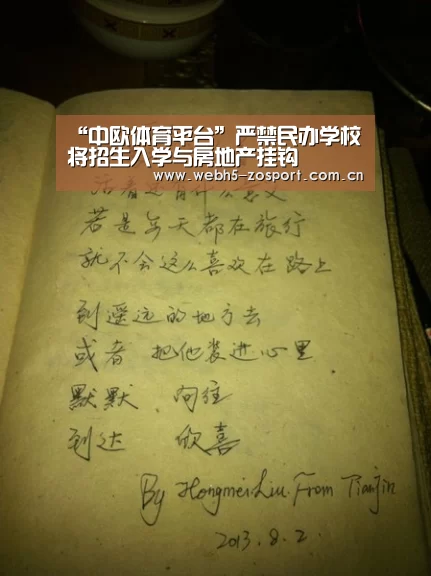 “中欧体育平台”严禁民办学校
将招生入学与房地产挂钩
www.webh5-zosport.com.cn
活着还有什么
若是每天都在旅行
就不会这么喜欢在路上
到遥远的地方去
或者 把他装进心里
默默 向往
到达 欣喜
By Hongmei.Liu. From Tianjin
2013.8.2.